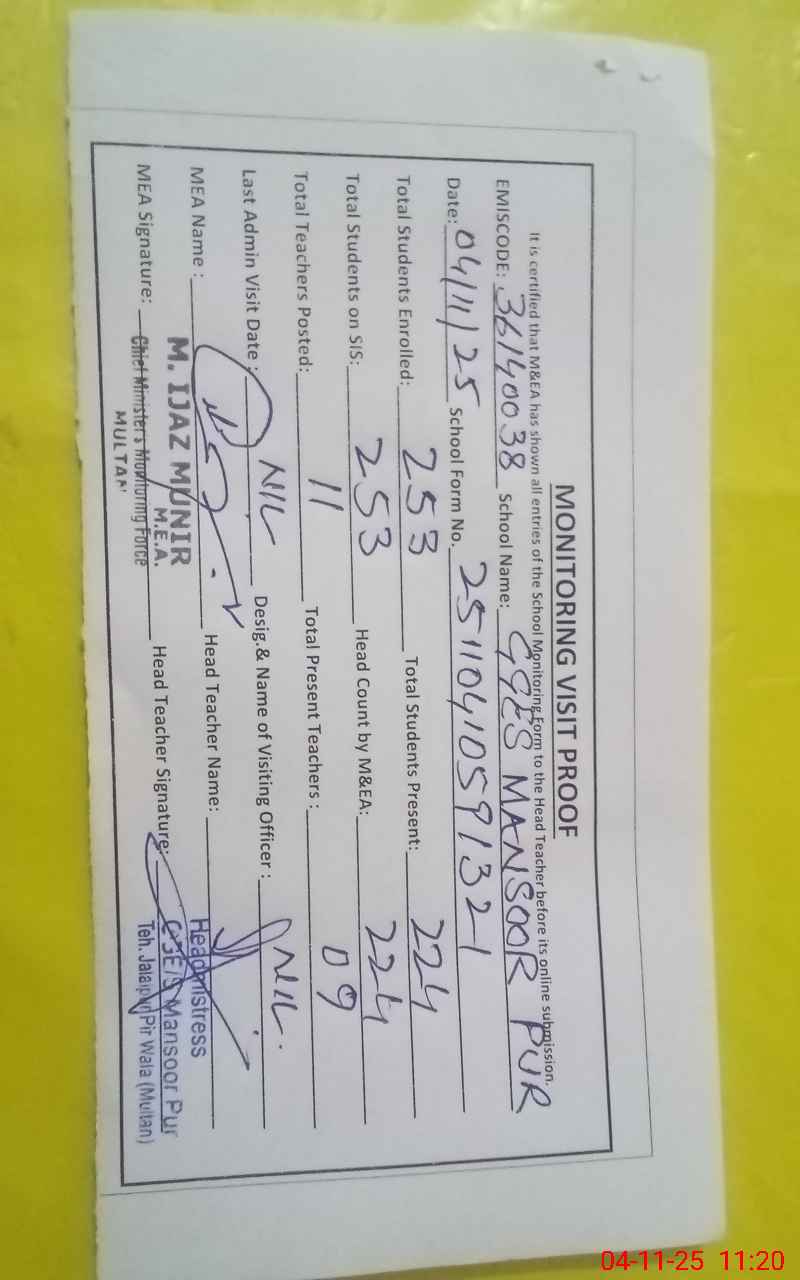 MONITORING VISIT PROOF
It is certified that M&EA has shown all entries of the School Monitoring Form to the Head Teacher before its online submission.
EMISCODE: 36140038 School Name: GGES MANSOOR PUR
Date: 04/11/25 School Form No. 25110410591321
Total Students Enrolled: 253 Total Students Present: 224
Total Students on SIS: 253 Head Count by M&EA: 224
Total Teachers Posted: 11 Total Present Teachers : 09
Last Admin Visit Date : NIL Desig.& Name of Visiting Officer : NIL.
MEA Name : Head Teacher Name:
MEA Signature: Head Teacher Signature:
M. IJAZ MUNIR
M.E.A.
Chief Minister's Monitoring Force
MULTAN
Headmistress
GGE/S Mansoor Pur
Teh. Jalalpur Pir Wala (Multan)
04-11-25 11:20